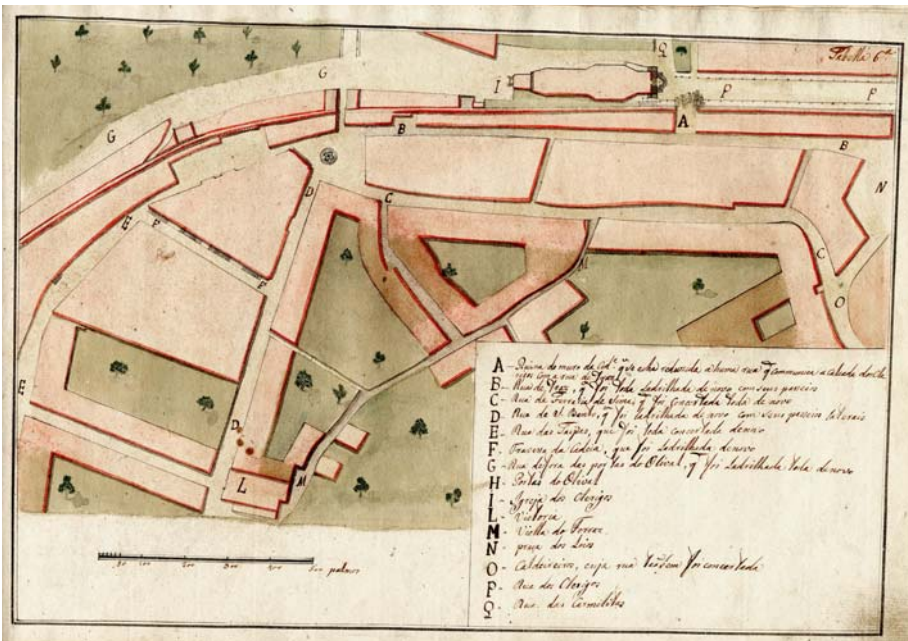 Tabella 6ª
Q
G
I
P P
G
A
B
B
D
C
N
E F
M
C
F
O
E
D
L
M
A - Ruina do muro da Cidᵉ q̃ está reduzida a huma rua q̃ communica a calçada dos Cle
rigos com a rua de
B - Rua de q̃ foi toda ladrilhada de novo com seus passeios
C - Rua de Ferraria de Sima, q̃ foi concertada toda de novo
D - Rua de S. Bento, q̃ foi ladrilhada de novo com seus passeios lateraes
E - Rua das Taipas, que foi toda concertada de novo
F - Travessa da Cadeia, que foi ladrilhada de novo
G - Rua de fora das portas do Olival, q̃ foi ladrilhada toda de novo
H - Portas do Olival
I - Igreja dos Clerigos
L - Victoria
M - Viella do Ferraz
N - praça dos Loios
O - Caldeireiros, cuja rua tãobem foi concertada
P - Rua dos Clerigos
Q - Rua das Carmelitas
50 100 200 300 400 500 palmos